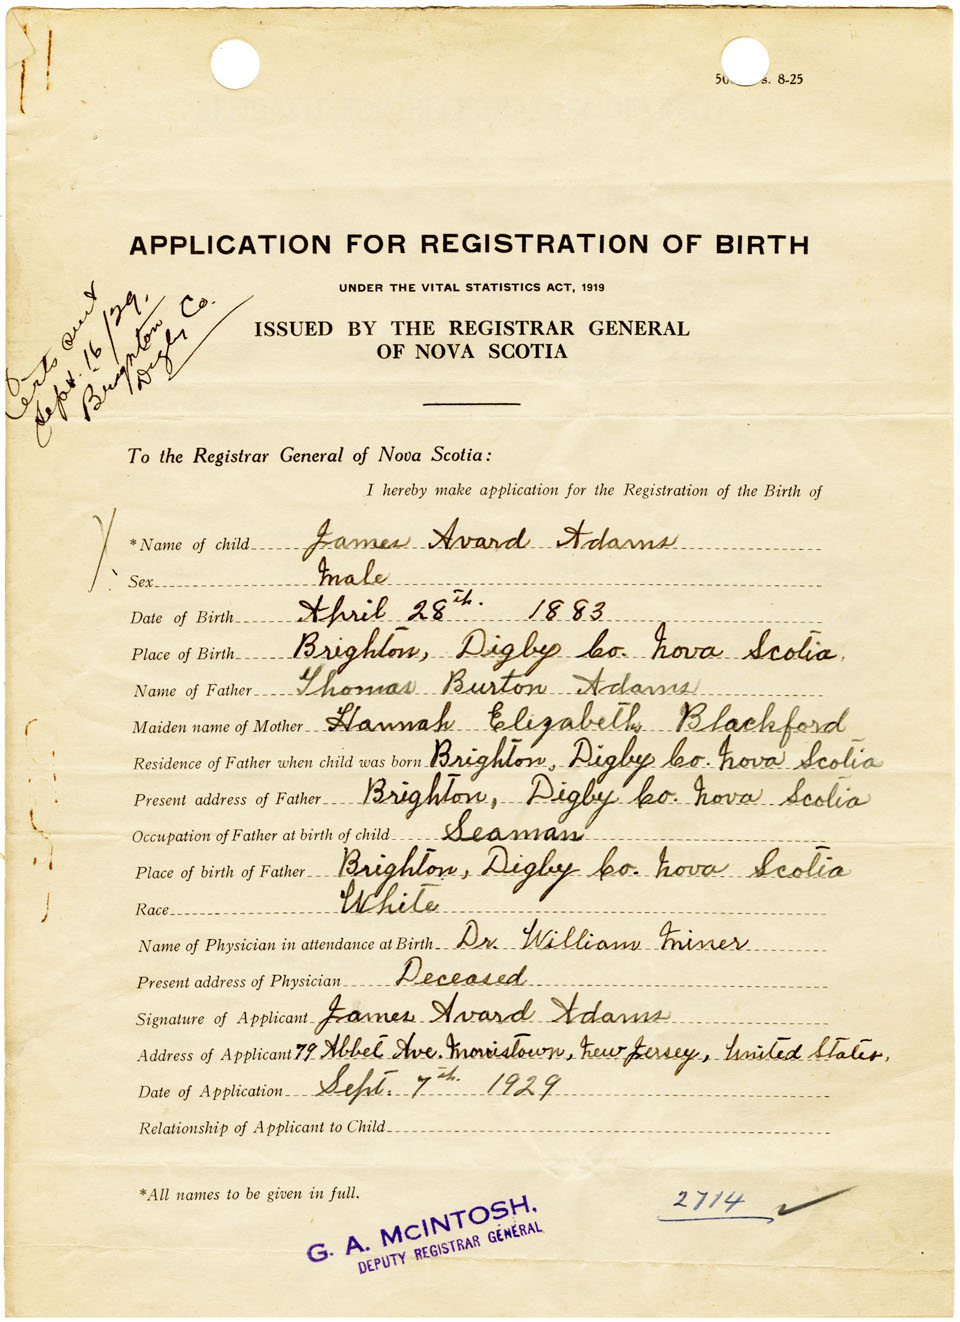 s. 8-25
APPLICATION FOR REGISTRATION OF BIRTH
UNDER THE VITAL STATISTICS ACT, 1919
ISSUED BY THE REGISTRAR GENERAL
OF NOVA SCOTIA
Certs sent
Sept. 16/29.
Brighton
Digby Co.
To the Registrar General of Nova Scotia:
I hereby make application for the Registration of the Birth of
*Name of child James Avard Adams
Sex Male
Date of Birth April 28th. 1883
Place of Birth Brighton, Digby Co. Nova Scotia.
Name of Father Thomas Burton Adams
Maiden name of Mother Hannah Elizabeth Blackford
Residence of Father when child was born Brighton, Digby Co. Nova Scotia
Present address of Father Brighton, Digby Co. Nova Scotia
Occupation of Father at birth of child Seaman
Place of birth of Father Brighton, Digby Co. Nova Scotia
Race White
Name of Physician in attendance at Birth Dr. William Miner
Present address of Physician Deceased
Signature of Applicant James Avard Adams
Address of Applicant 79 Abbet Ave. Morristown, New Jersey, United States.
Date of Application Sept. 7th. 1929
Relationship of Applicant to Child
*All names to be given in full.
2714
G. A. McINTOSH.
DEPUTY REGISTRAR GENERAL